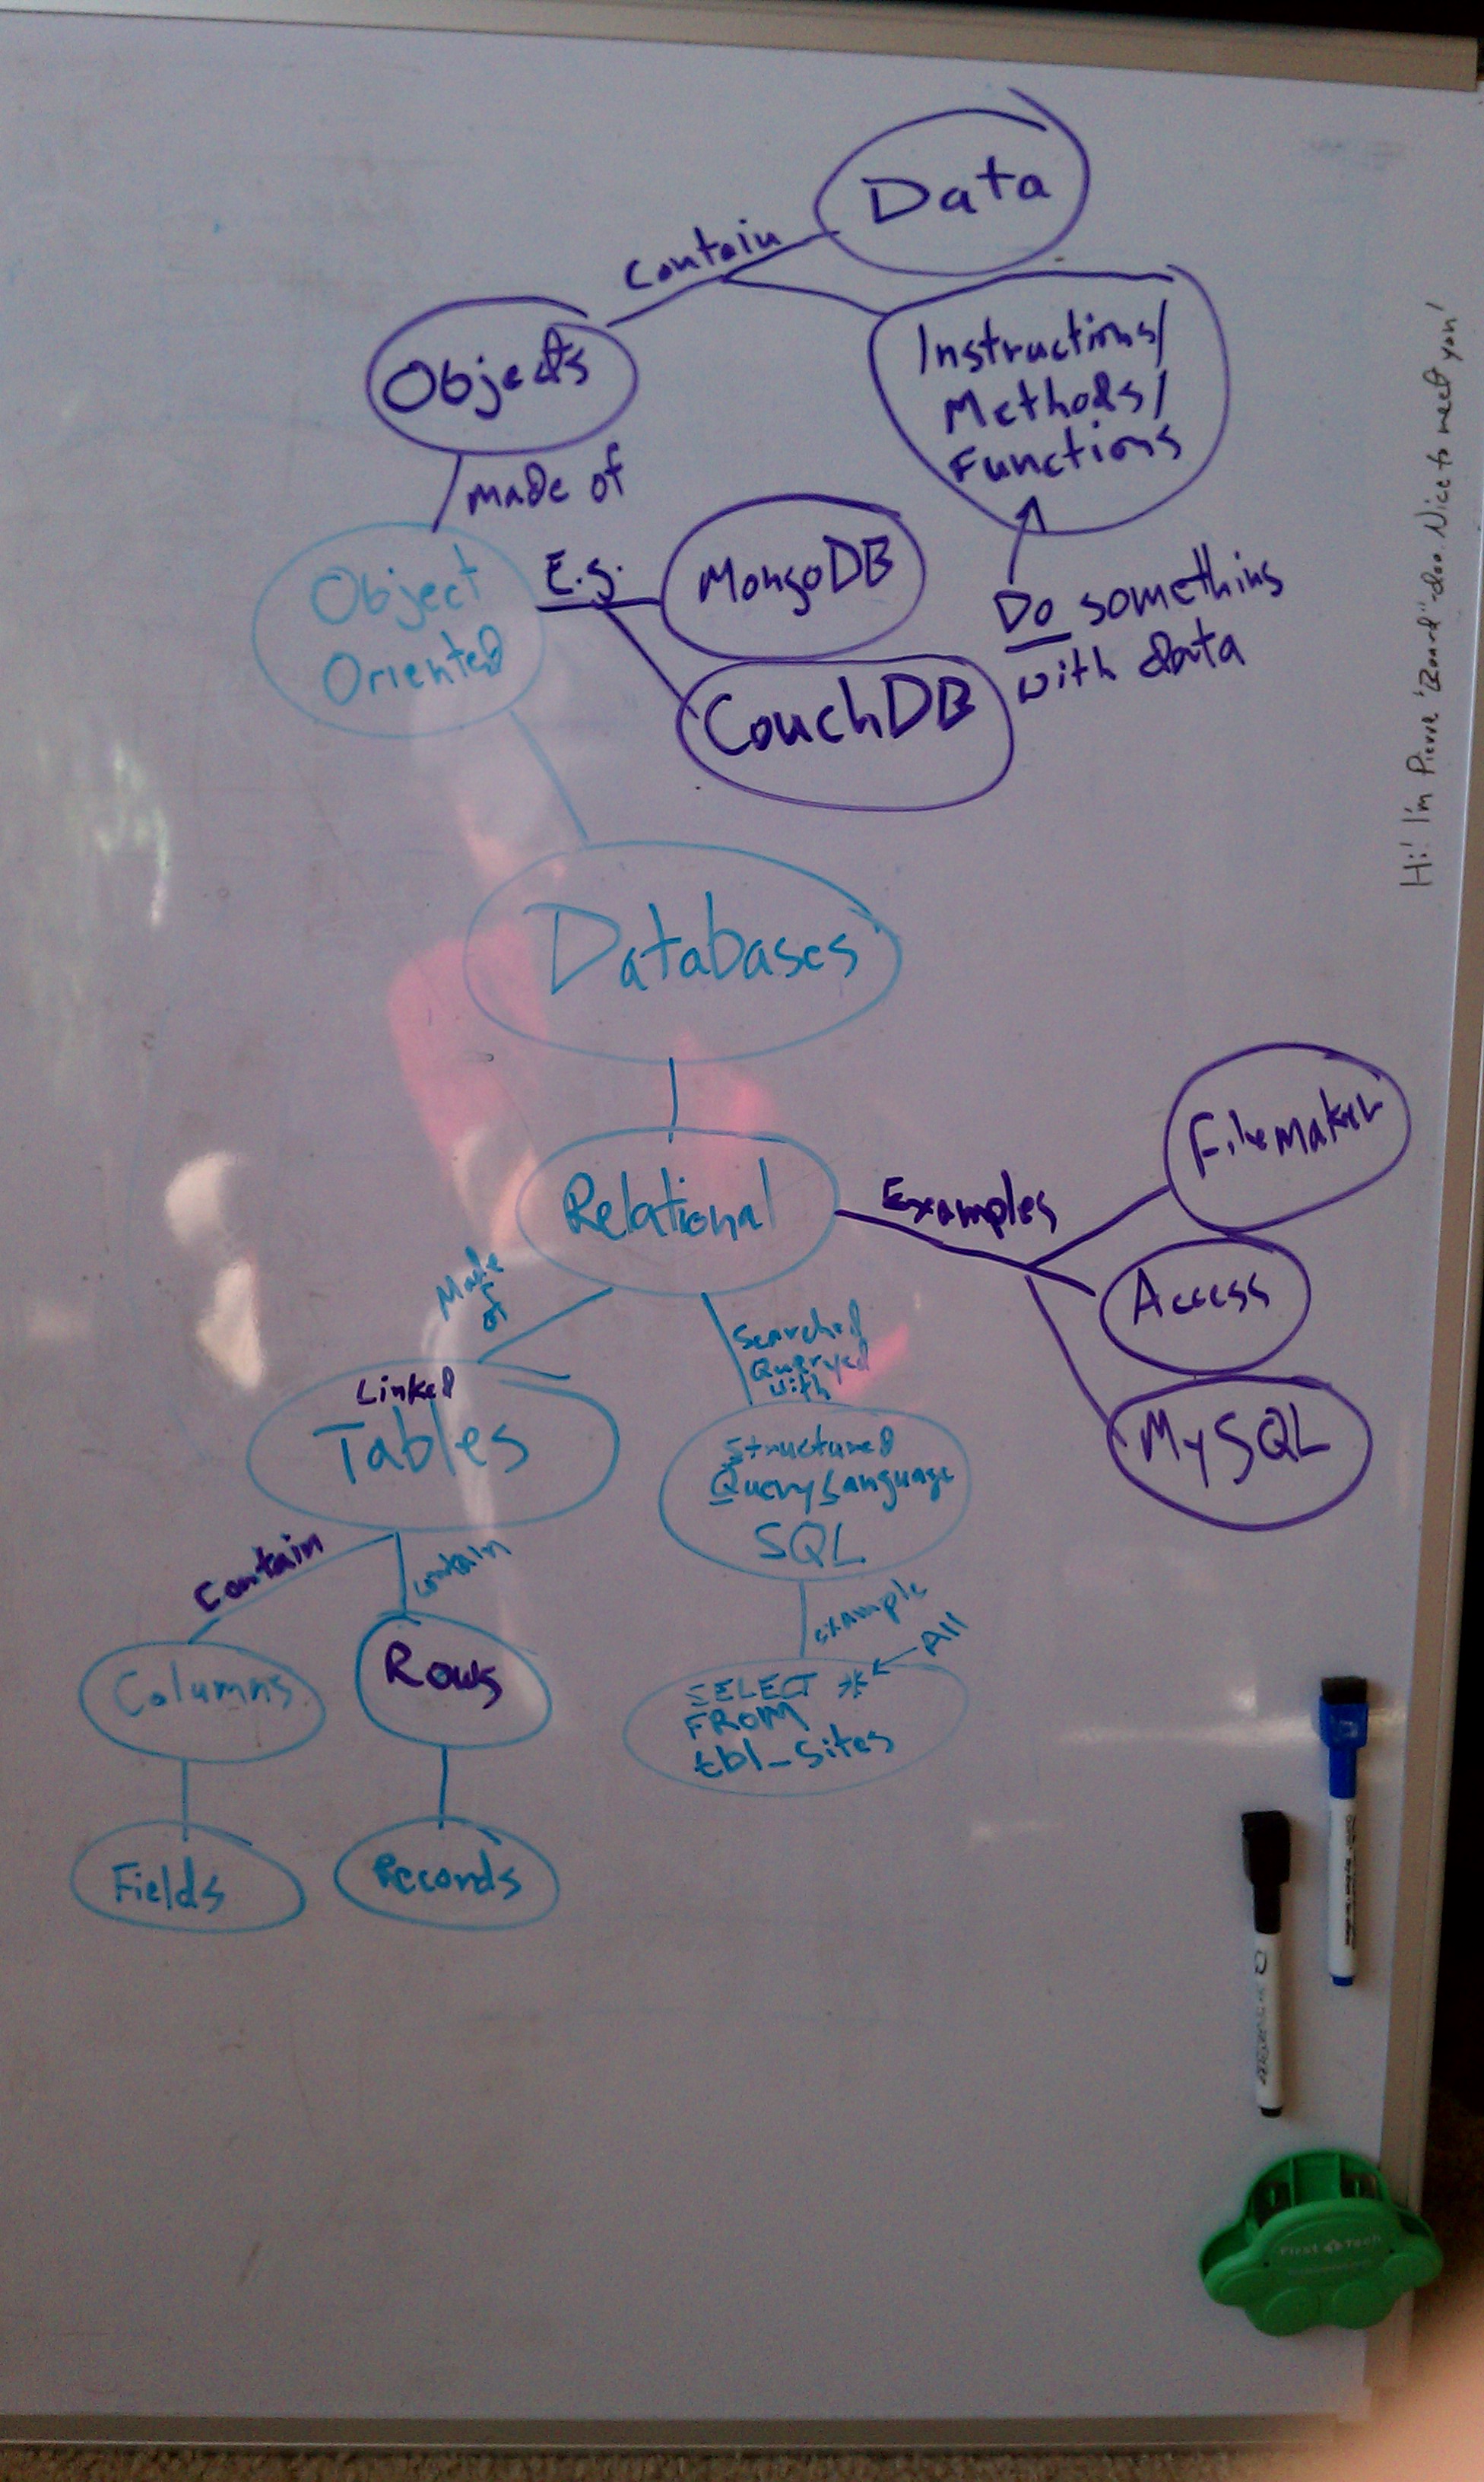 Data
Contain
Objects
Instructions/
Methods/
Functions
made of
Object
Oriented
E.g.
MongoDB
CouchDB
Do something
with data
Hi! I'm Pierre "Board"-doo. Nice to meet you!
Databases
Relational
Examples
FileMaker
Access
MySQL
Made
of
Searched
Queryed
with
Linked
Tables
Structured
Query Language
SQL
Contain
contain
Columns
Rows
example
All
SELECT *
FROM
tbl_Sites
Fields
Records
First Tech